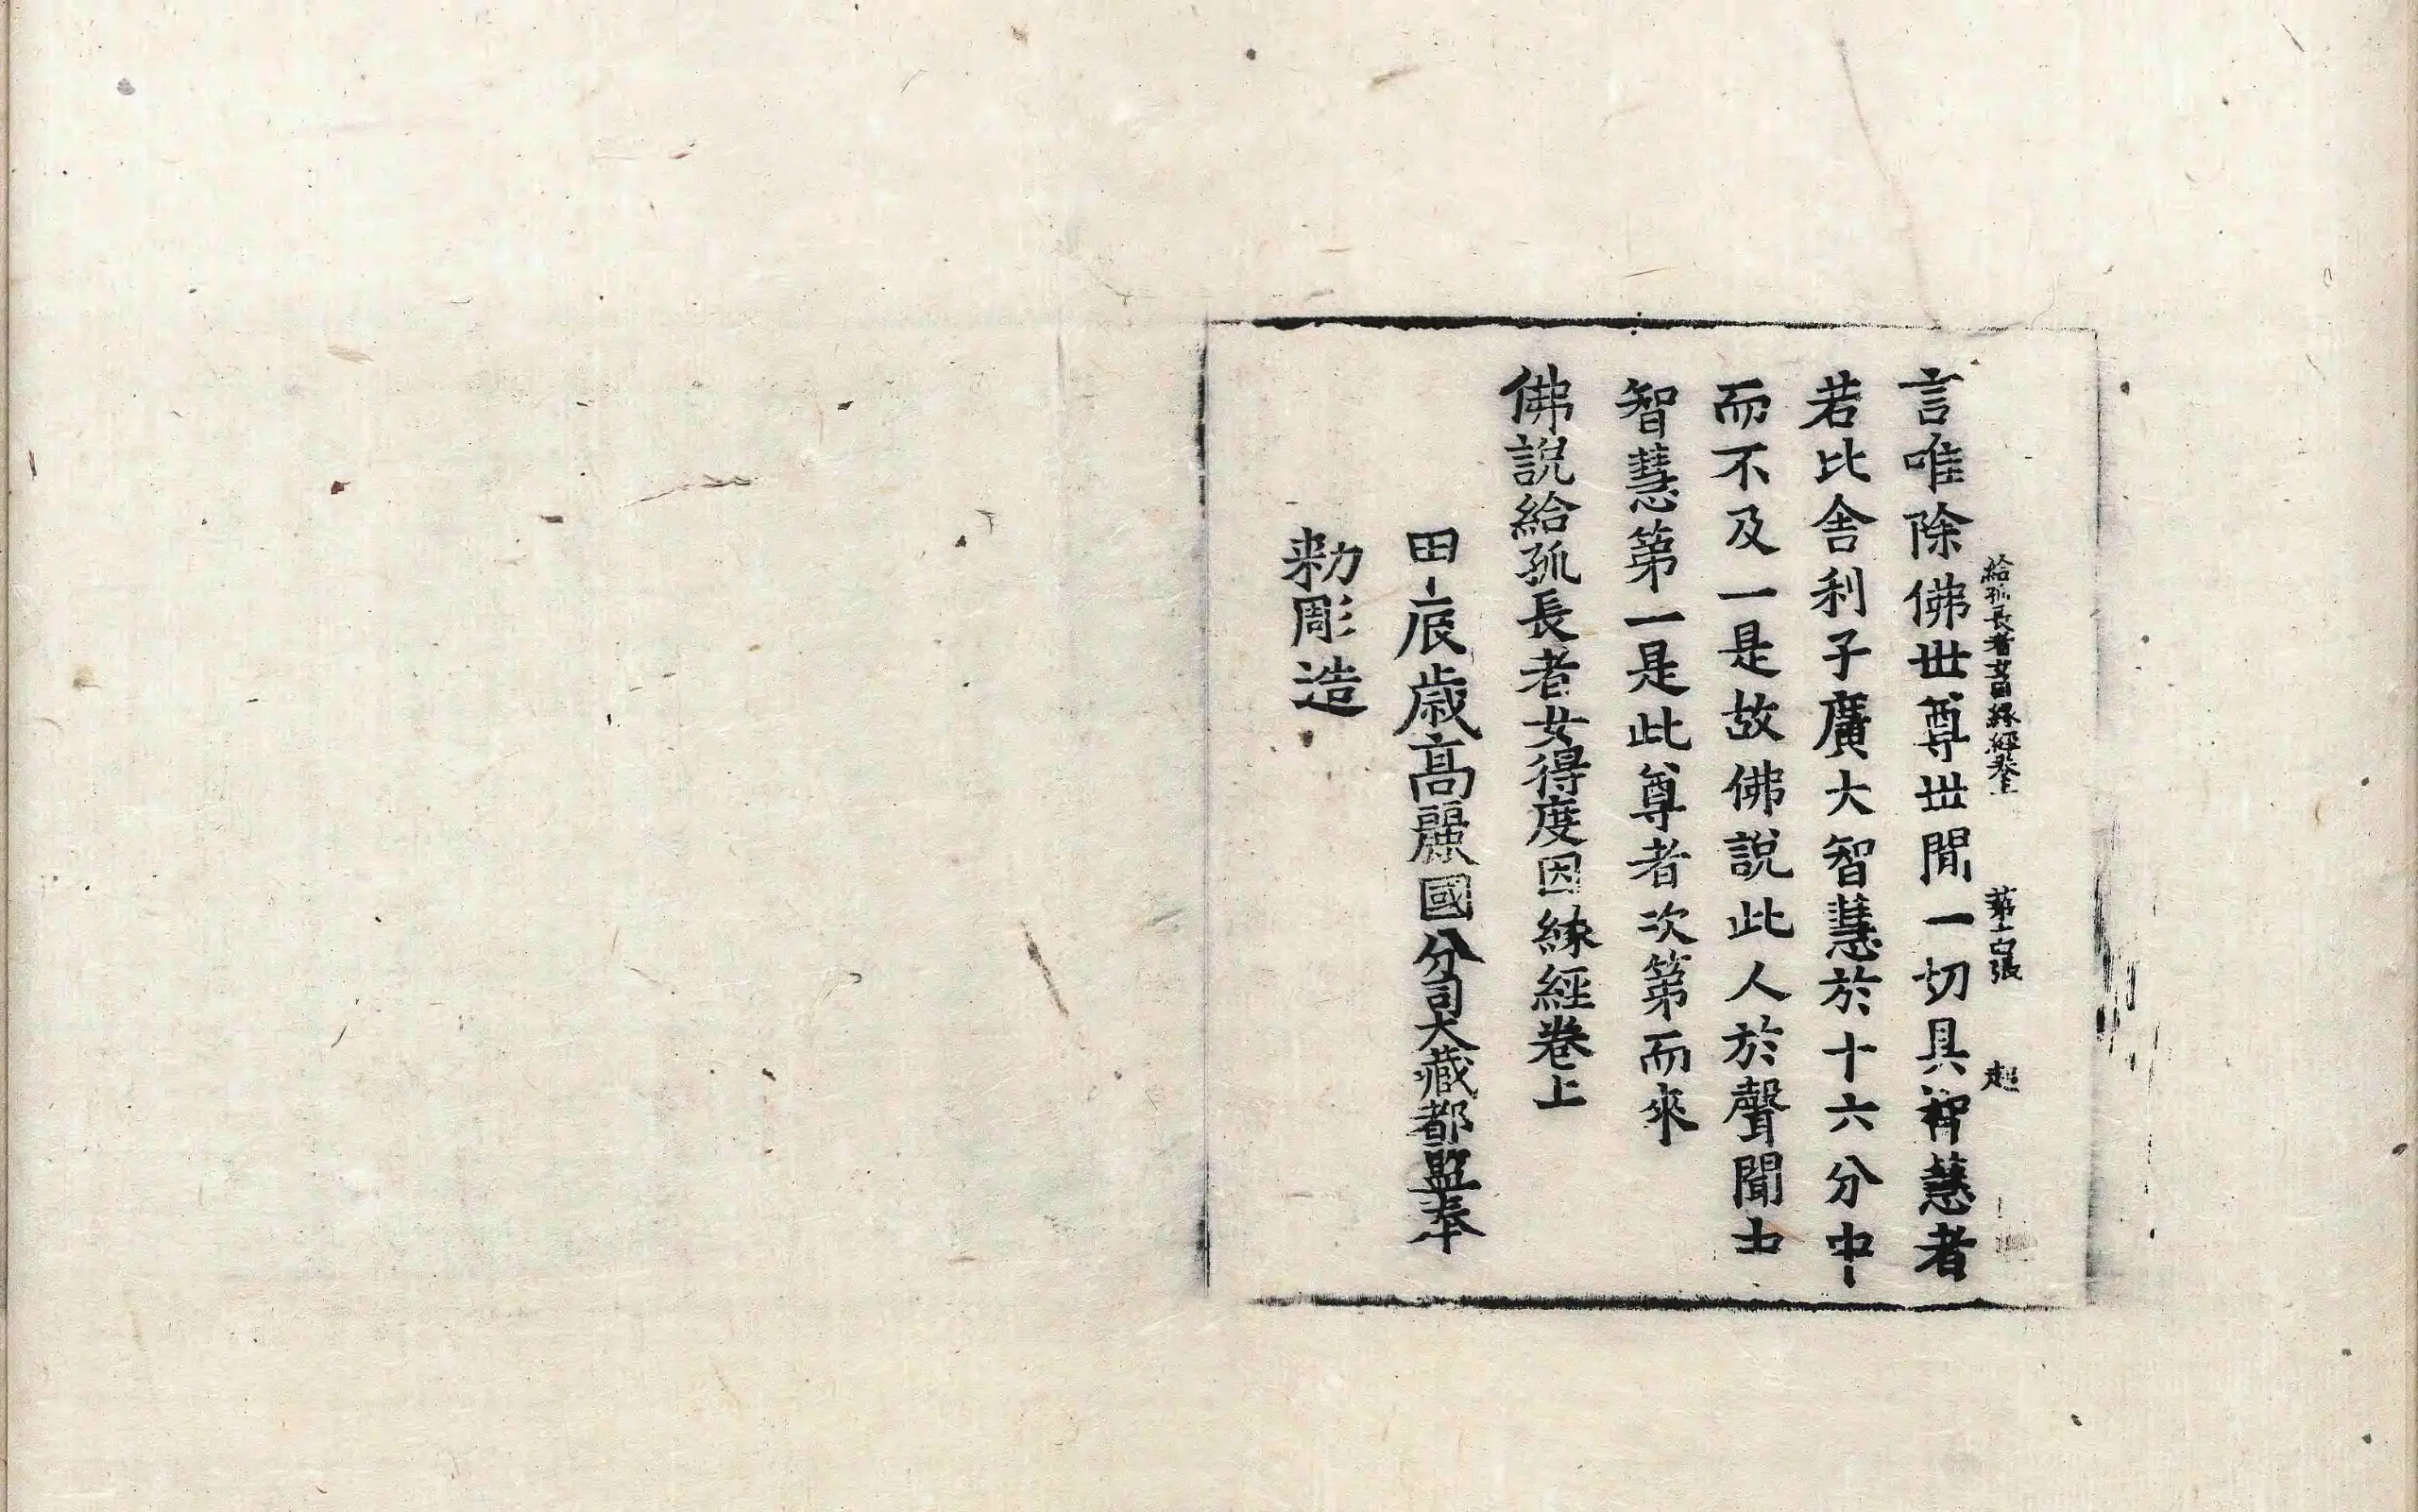 給孤長者女因緣經卷上 第十四張 超
言唯除佛世尊世間一切具智慧者
若比舍利子廣大智慧於十六分中
而不及一是故佛說此人於聲聞中
智慧第一是此尊者次第而來
佛說給孤長者女得度因緣經卷上
甲辰歲高麗國分司大藏都監奉
勑彫造